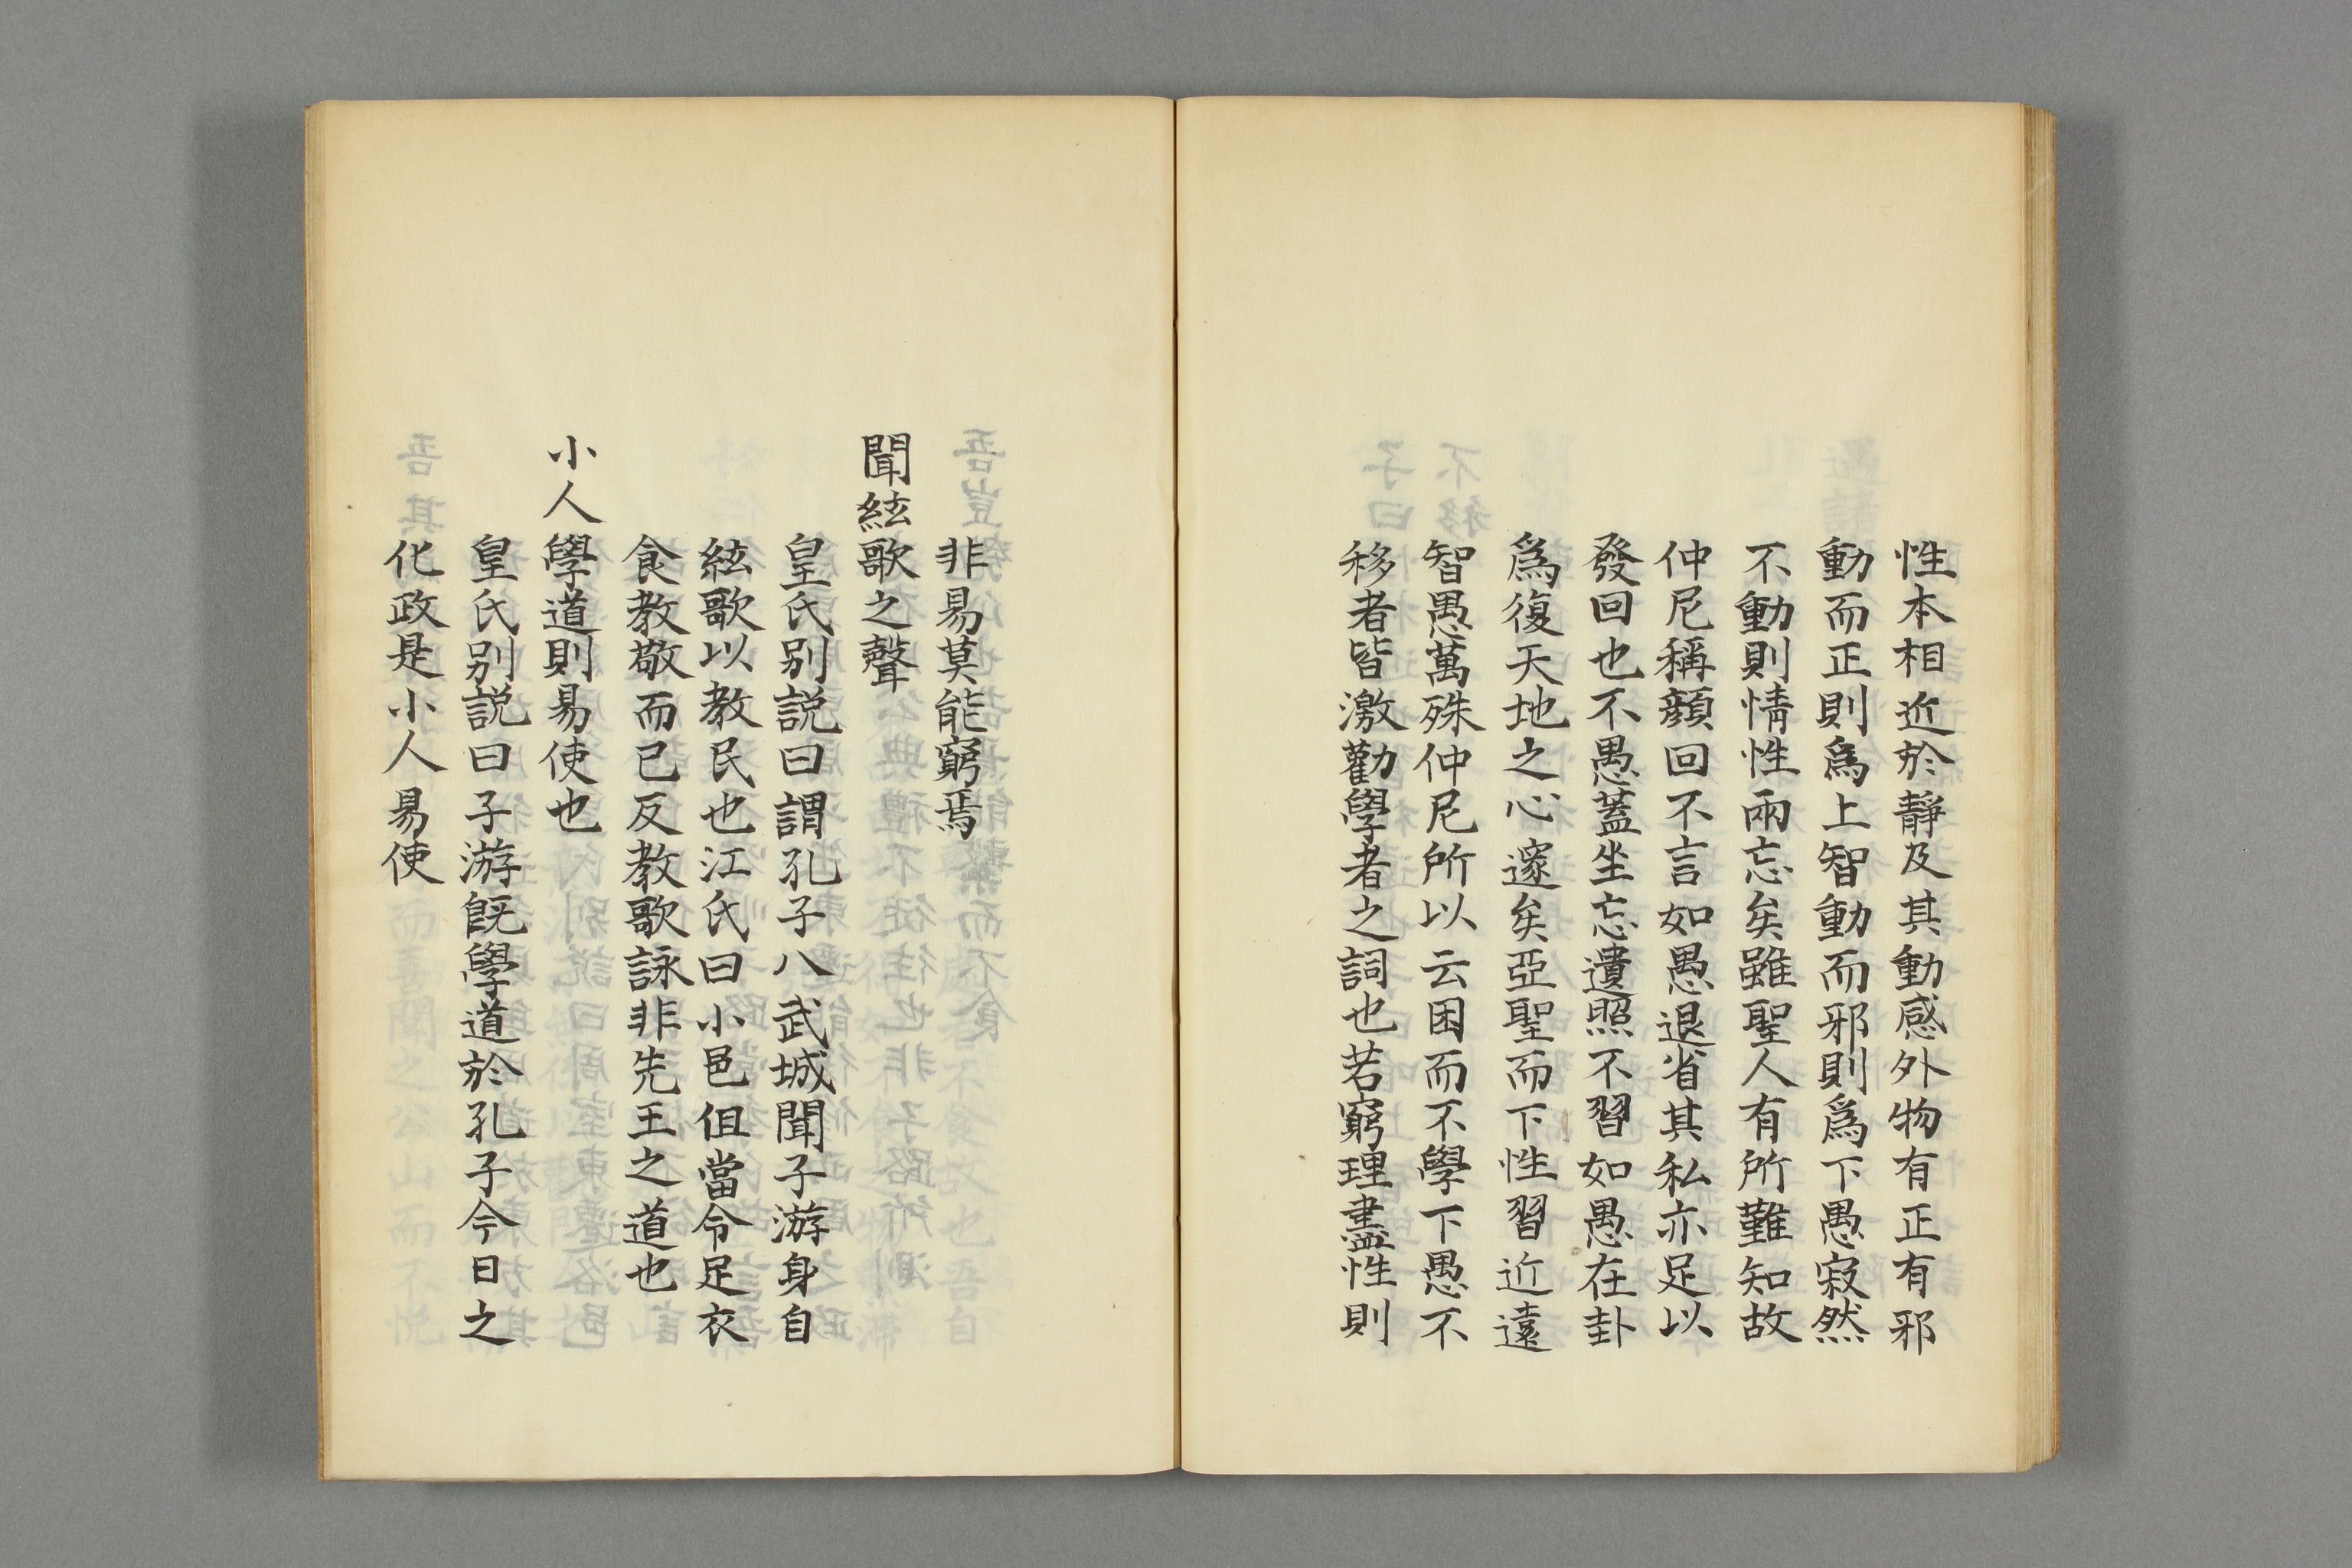 性本相近於靜及其動感外物有正有邪
動而正則爲上智動而邪則爲下愚寂然
不動則情性兩忘矣雖聖人有所難知故
仲尼稱顏回不言如愚退省其私亦足以
發回也不愚蓋坐忘遺照不習如愚在卦
爲復天地之心邃矣亞聖而下性習近遠
智愚萬殊仲尼所以云困而不學下愚不
移者皆激勸學者之詞也若窮理盡性則
非易莫能窮焉
聞絃歌之聲
皇氏别説曰謂孔子八武城聞子游身自
絃歌以教民也江氏曰小邑但當令足衣
食教敬而已反教歌詠非先王之道也
小人學道則易使也
皇氏别説曰子游旣學道於孔子今日之
化政是小人易使